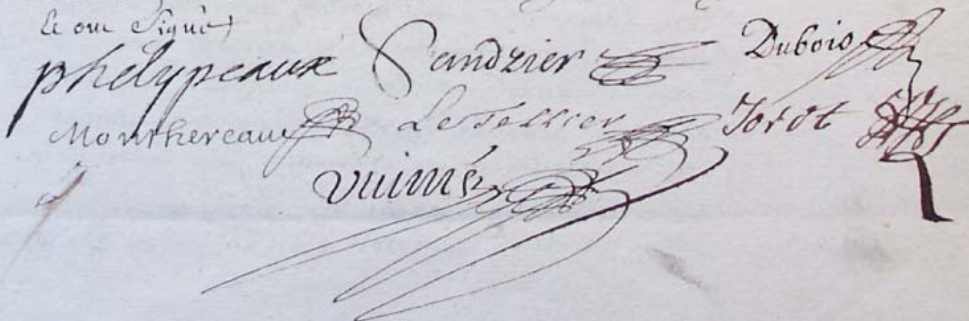 Et ont Signé
phelypeaux Sandrier Dubois
Monthereaux LeTellier Torot